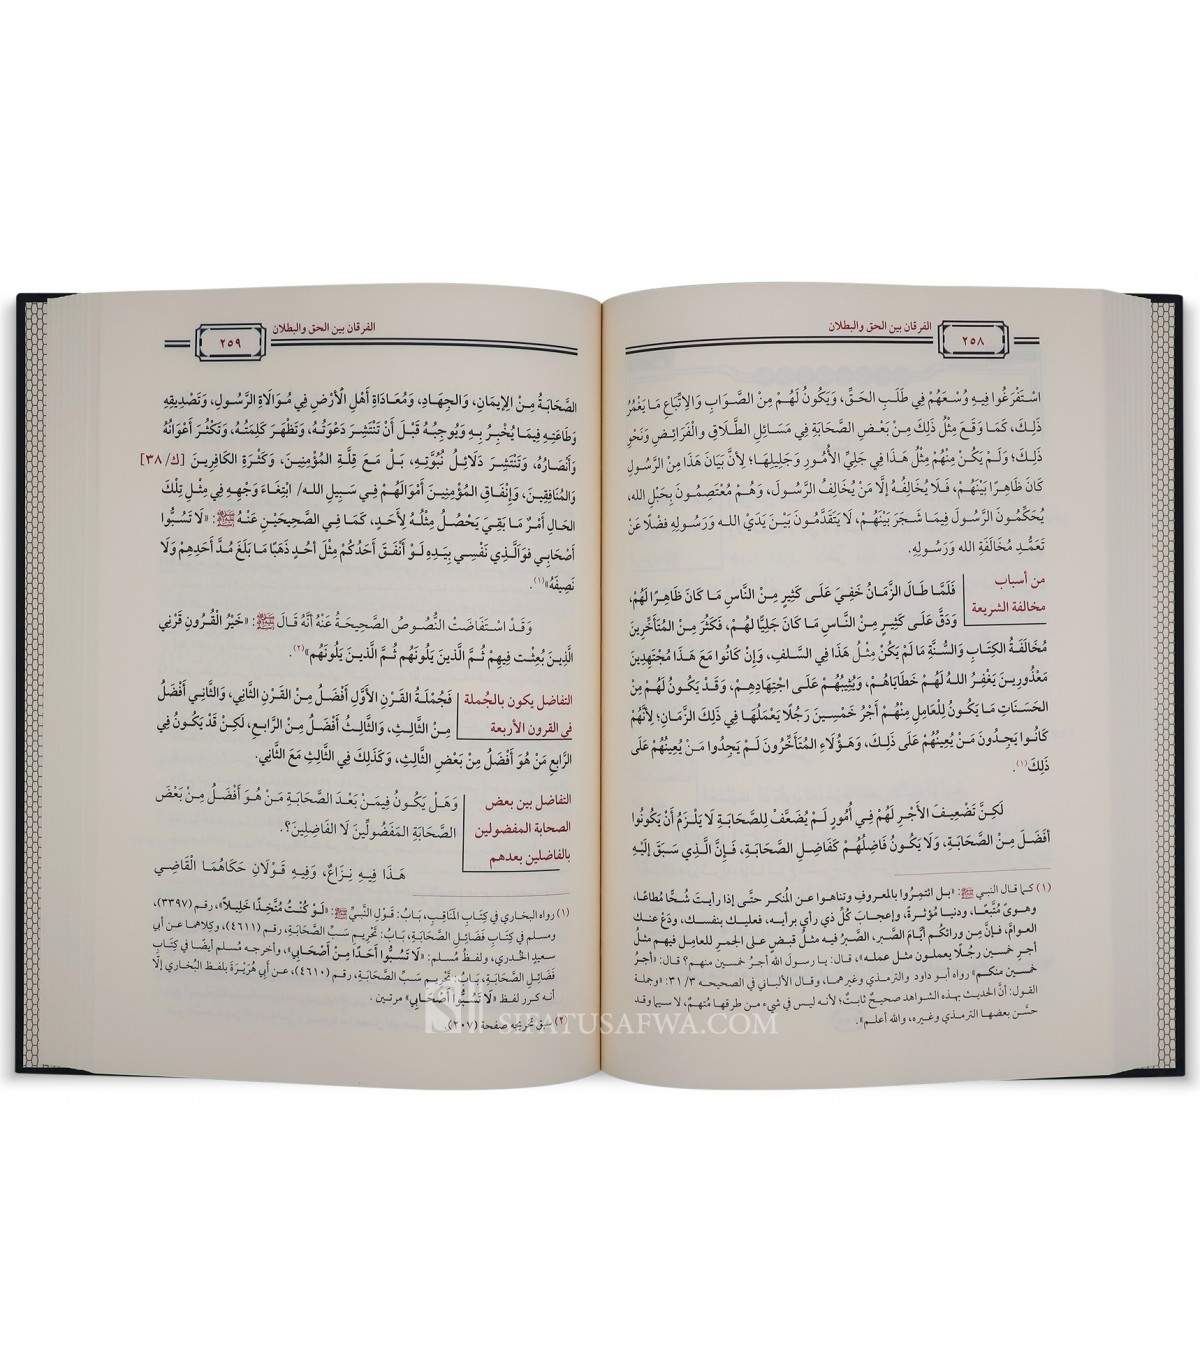 الفرقان بين الحق والبطلان
٢٥٨
اسْتَفْرَغُوا فِيهِ وُسْعَهُمْ فِي طَلَبِ الحَقِّ، وَيَكُونُ لَهُمْ مِنْ الصَّوَابِ وَالِاتِّبَاعِ مَا يَغْمُرُ
ذَلِكَ، كَمَا وَقَعَ مِثْلُ ذَلِكَ مِنْ بَعْضِ الصَّحَابَةِ فِي مَسَائِلِ الطَّلَاقِ والْفَرَائِضِ وَنَحْوِ
ذَلِكَ؛ وَلَمْ يَكُنْ مِنْهُمْ مِثْلُ هَذَا فِي جَلِيِّ الأُمُورِ وَجَلِيلِهَا؛ لِأَنَّ بَيَانَ هَذَا مِنْ الرَّسُولِ
كَانَ ظَاهِرًا بَيْنَهُمْ، فَلَا يُخَالِفُهُ إِلَّا مَنْ يُخَالِفُ الرَّسُولَ، وَهُمْ مُعْتَصِمُونَ بِحَبْلِ الله،
يُحَكِّمُونَ الرَّسُولَ فِيمَا شَجَرَ بَيْنَهُمْ، لَا يَتَقَدَّمُونَ بَيْنَ يَدَيْ اللـه وَرَسُولِهِ فضْلًا عَنْ
تَعَمُّدِ مُخَالَفَةِ الله وَرَسُولِهِ.
من أسباب
مخالفة الشريعة
فَلَمَّا طَالَ الزَّمَانُ خَفِيَ عَلَى كَثِيرٍ مِنْ النَّاسِ مَا كَانَ ظَاهِرًا لَهُمْ،
وَدَقَّ عَلَى كَثِيرٍ مِنْ النَّاسِ مَا كَانَ جَلِيًّا لَهُمْ، فَكَثُرَ مِنْ المُتَأَخِّرِينَ
مُخَالَفَةُ الكِتَابِ وَالسُّنَّةِ مَا لَمْ يَكُنْ مِثْلُ هَذَا فِي السَّلفِ، وَإِنْ كَانُوا مَعَ هَذَا مُجْتَهِدِينَ
مَعْذُورِينَ يَغْفِرُ اللـهُ لَهُمْ خَطَايَاهُمْ، وَيُثِيبُهُمْ عَلَى اجْتِهَادِهِمْ، وَقَدْ يَكُونُ لَهُمْ مِنْ
الحَسَنَاتِ مَا يَكُونُ لِلْعَامِلِ مِنْهُمْ أَجْرُ خَمْسِينَ رَجُلًا يَعْمَلُهَا فِي ذَلِكَ الزَّمَانِ؛ لِأَنَّهُمْ
كَانُوا يَجِدُونَ مَنْ يُعِينُهُمْ عَلَى ذَلِكَ، وَهَؤُلَاءِ المُتَأَخِّرُونَ لَمْ يَجِدُوا مَنْ يُعِينُهُمْ عَلَى
ذَلِكَ(١).
لَكِنَّ تَضْعِيفَ الأَجْرِ لَهُمْ فِي أُمُورٍ لَمْ يُضَعَّفْ لِلصَّحَابَةِ لَا يَلْزَمُ أَنْ يَكُونُوا
أَفْضَلَ مِنْ الصَّحَابَةِ، وَلَا يَكُونُ فَاضِلُهُمْ كَفَاضِلِ الصَّحَابَةِ، فَإِنَّ الَّذِي سَبَقَ إلَيْهِ
(١) كما قال النبي ﷺ: «بل ائتمِرُوا بالمعروفِ وتناهوا عن المُنكر حتَّى إذا رأيتَ شُحًّا مُطاعًا،
وهوىً مُتَّبعًا، ودنيا مُؤثرةً، وإعجابَ كُلِّ ذي رأيٍ برأيه، فعليك بنفسك، ودَعْ عنك
العوامَّ، فإنَّ مِن ورائكُم أيَّامَ الصَّبر، الصَّبرُ فيه مثلُ قبضٍ على الجمرِ للعامِلِ فيهم مثلُ
أجرِ خمسين رجُلًا يعملون مثل عمله»، قال: يا رسولَ الله أجرُ خمسين منهم؟ قال: «أجرُ
خمسين منكم» رواه أبو داود والترمذي وغيرهما، وقال الألباني في الصحيحة ٣/ ٣١: «وجملة
القول: أنَّ الحديث بهذه الشواهد صحيحٌ ثابتٌ؛ لأنه ليس في شيء من طرقها مُتهمٌ، لا سيما وقد
حسَّن بعضها الترمذي وغيره، والله أعلم».
الفرقان بين الحق والبطلان
٢٥٩
الصَّحَابَةُ مِنْ الإِيمَانِ، وَالجِهَادِ، وَمُعَادَاةِ أَهْلِ الأَرْضِ فِي مُوَالَاةِ الرَّسُولِ، وَتَصْدِيقِهِ
وَطَاعَتِهِ فِيمَا يُخْبِرُ بِهِ وَيُوجِبُهُ قَبْلَ أَنْ تَنْتَشِرَ دَعْوَتُهُ، وَتَظْهَرَ كَلِمَتُهُ، وَتَكْثُرَ أَعْوَانُهُ
وَأَنْصَارُهُ، وَتَنْتَشِرَ دَلَائِلُ نُبُوَّتِهِ، بَلْ مَعَ قِلَّةِ المُؤْمِنِينَ، وَكَثْرَةِ الكَافِرِينَ [ك/ ٣٨]
وَالمُنَافِقِينَ، وَإِنْفَاقِ المُؤْمِنِينَ أَمْوَالَهُمْ فِي سَبِيلِ الله/ ابْتِغَاءَ وَجْهِهِ فِي مِثْلِ تِلْكَ
الحَالِ أَمْرٌ مَا بَقِيَ يَحْصُلُ مِثْلُهُ لِأَحَدٍ، كَمَا فِي الصَّحِيحَيْنِ عَنْهُ ﷺ: «لَا تَسُبُّوا
أَصْحَابِي فوَالَّذِي نَفْسِي بِيَدِهِ لَوْ أَنْفَقَ أَحَدُكُمْ مِثْلَ أُحُدٍ ذَهَبًا مَا بَلَغَ مُدَّ أَحَدِهِمْ وَلَا
نَصِيفَهُ»(١).
وَقَدْ اسْتَفَاضَتْ النُّصُوصُ الصَّحِيحَةُ عَنْهُ أَنَّهُ قَالَ ﷺ: «خَيْرُ الْقُرُونِ قَرْنِي
الَّذِينَ بُعِثْت فِيهِمْ ثُمَّ الَّذِينَ يَلُونَهُم ثُمَّ الَّذينَ يَلُونَهُم»(٢).
التفاضل يكون بالجُملة
في القرون الأربعة
فَجُمْلَةُ القَرْنِ الأَوَّلِ أَفْضَلُ مِنْ القَرْنِ الثَّانِي، وَالثَّانِي أَفْضَلُ
مِنْ الثَّالِثِ، وَالثَّالِثُ أَفْضَلُ مِنْ الرَّابِعِ، لَكِنْ قَدْ يَكُونُ فِي
الرَّابِعِ مَنْ هُوَ أَفْضَلُ مِنْ بَعْضِ الثَّالِثِ، وَكَذَلِكَ فِي الثَّالِثِ مَعَ الثَّانِي.
التفاضل بين بعض
الصحابة المفضولين
بالفاضلين بعدهم
وَهَلْ يَكُونُ فِيمَنْ بَعْدَ الصَّحَابَةِ مَنْ هُوَ أَفْضَلُ مِنْ بَعْضِ
الصَّحَابَةِ المَفْضُولِينَ لَا الفَاضِلِينَ؟.
هَذَا فِيهِ نِزَاعٌ، وَفِيهِ قَوْلَانِ حَكَاهُمَا الْقَاضِي
(١) رواه البخاري في كِتَاب المَنَاقِبِ، بَابُ: قَوْلِ النَّبِيِّ ﷺ: «لَوْ كُنْتُ مُتَّخِذًا خَلِيلًا»، رقم (٣٣٩٧)،
ومسلم في كِتَابِ فَضَائِلِ الصَّحَابَةِ، بَابُ: تَحْرِيمِ سَبِّ الصَّحَابَةِ، رقم (٤٦١١)، وكلاهما عن أبي
سعيدٍ الخدري، ولفظُ مُسلم: «لَا تَسُبُّوا أَحَدًا مِنْ أَصْحَابِي»، وأخرجه مُسلم أيضًا في كِتَابِ
فَضَائِلِ الصَّحَابَةِ، بَابُ: تَحْرِيمِ سَبِّ الصَّحَابَةِ، رقم (٤٦١٠)، عن أَبِي هُرَيْرَةَ بلفظ البُخاري إلَّا
أنه كرر لفظ «لَا تَسُبُّوا أَصْحَابِي» مرتين.
(٢) سبق تخريجه صفحة (٢٠٧).
SIFATUSAFWA.COM